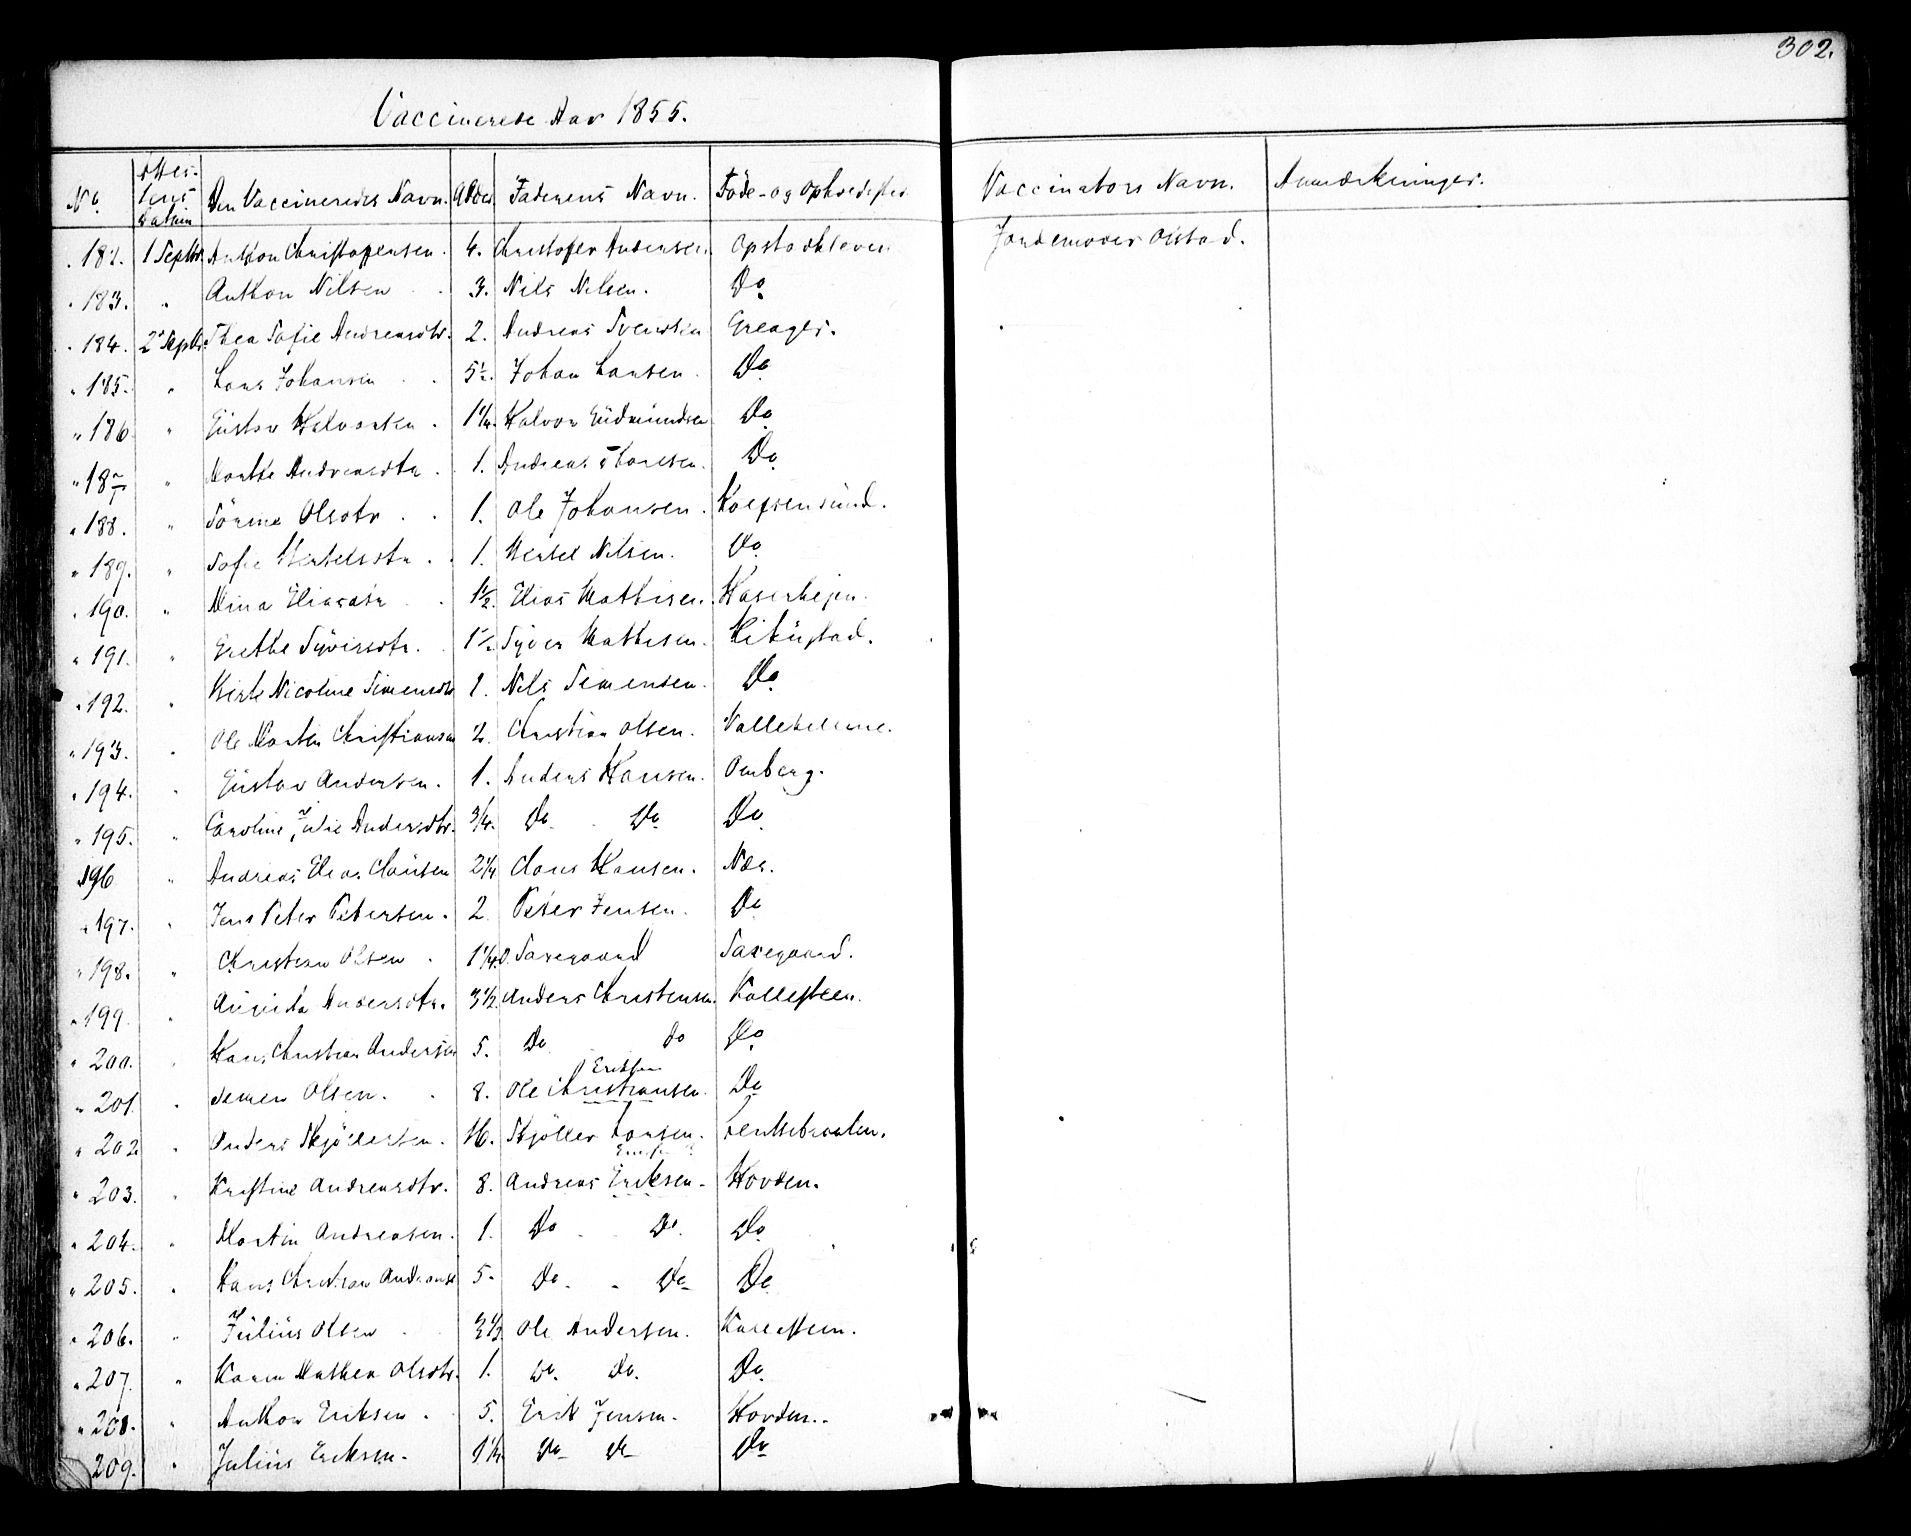 302.
Vaccinerede Aar 1855.
No. Attestens Datum Den Vaccineredes Navn. Alder Faderens Navn. Føde- og Opholdssted Vaccinators Navn. Anmærkninger.
182. 1 Septbr Anthon Christoffersen. 4. Christofer Andersen. Opstadkleven Jordemoder Olstad.
" 183. " Anthon Nilsen 3. Nils Nilsen. Do
" 184. 2 Septbr. Thea Sofie Andreasdtr. 2. Andreas Svendsen Greager.
" 185. " Lars Johansen 5½. Johan Larsen. Do
" 186 " Güstav Halvorsen. 1¼. Halvor Güdmündsen Do
" 187 " Marthe Andreasdtr. 1. Andreas Do
" 188. " Sörine Olsdtr. 1. Ole Johansen. sünd.
" 189. " Sofie Bertelsdtr. 1. Bertel Nilsen. Do
" 190. " Mina Eliasdtr 1½. Elias Mathisen.
" 191. " Grethe Syversdtr. 1½ Syver Mathisen.
" 192. " Nicoline Simensdtr 1. Nils Simensen. Do
" 193. " Ole Martin Christiansen 2. Christian Olsen.
" 194. " Güstav Andersen. 1. Anders Hansen. Omberg.
" 195. " Caroline Julie Andersdtr. ¾. Do. Do Do
196 " Andreas Elias Claüsen 2¼ Claus Hansen. Næs.
" 197. " Jens Peter Petersen. 2. Peter Jensen. Do
" 198. " Christian Olsen. 1¼ O. Saxegaard Saxegaard.
" 199. " Andersdtr. 3½. Anders Christensen. Kallesteen.
" 200. " Hans Christian Andersen 5. Do Do Do
Eriksen
" 201. " Simen Olsen. 8. Ole Christiansen. Do
" 202. " Anders Skjöllersen. Skjöller Larsen.
" 203. " Kristine Andreasdtr. 8. Andreas Eriksen. Hovden.
" 204. " Martin Andreasen. 1. Do Do. Do
" 205. " Hans Christian Andreasen 5. Do. " Do Do
" 206. " Jülius Olsen 3½ Ole Andersen. Kallesteen.
" 207. " Karen Mathea Olsdtr. 1. Do. Do. Do.
" 208. " Anthon Eriksen. 5. Erik Jensen. Hovden.
209. " Jülius Eriksen. 1¼. Do Do Do